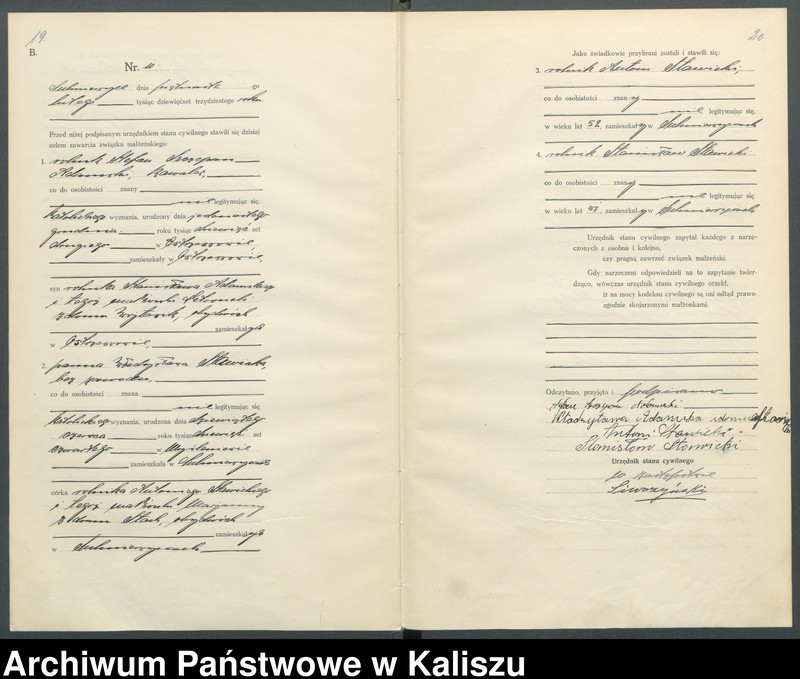 19.
B.
Nr. 10.
dnia piętnaste go
lutego tysiąc dziewięćset trzydziestego roku
Przed niżej podpisanym urzędnikiem stanu cywilnego stawili się dzisiaj
celem zawarcia związku małżeńskiego:
1. rolnik Stefan Szczepan
kawaler,
co do osobistości znany
nie legitymując się,
katolickiego wyznania, urodzony dnia jedenastego
grudnia roku tysiąc dziewięć set
drugiego w Ostrzeszowie,
zamieszkały w Ostrzeszowie,
syn rolnika Stanisława
i tegoż małżonki
z domu Wojtasik, obydwóch
zamieszkałych
w Ostrzeszowie,
2. panna Władysława Sławicka,
bez zawodu,
co do osobistości znana
nie legitymując się
katolickiego wyznania, urodzona dnia dziewiątego
czerwca roku tysiąc dziewięć set
czwartego w Myślniewie
zamieszkała w
córka rolnika Antoniego Sławickiego
i tegoż małżonki Maryanny
z domu Stach, obydwóch
zamieszkałych
w
20
Jako świadkowie przybrani zostali i stawili się:
3. rolnik Antoni Sławicki,
co do osobistości znany
nie legitymując się,
w wieku lat 52, zamieszkały w
4. rolnik Stanisław Sławicki
co do osobistości znany
nie legitymując się
w wieku lat zamieszkały w
Urzędnik stanu cywilnego zapytał każdego z narze-
czonych z osobna i kolejno,
czy pragną zawrzeć związek małżeński.
Gdy narzeczeni odpowiedzieli na to zapytanie twier-
dząco, wówczas urzędnik stanu cywilnego orzekł,
iż na mocy kodeksu cywilnego są oni odtąd prawo-
zgodnie skojarzonymi małżonkami.
Odczytano, przyjęto i podpisano
Szczepan
Władysława Adamska z domu
Antoni Sławicki
Stanisław Sławicki
Urzędnik stanu cywilnego
w zastępstwie
Archiwum Państwowe w Kaliszu